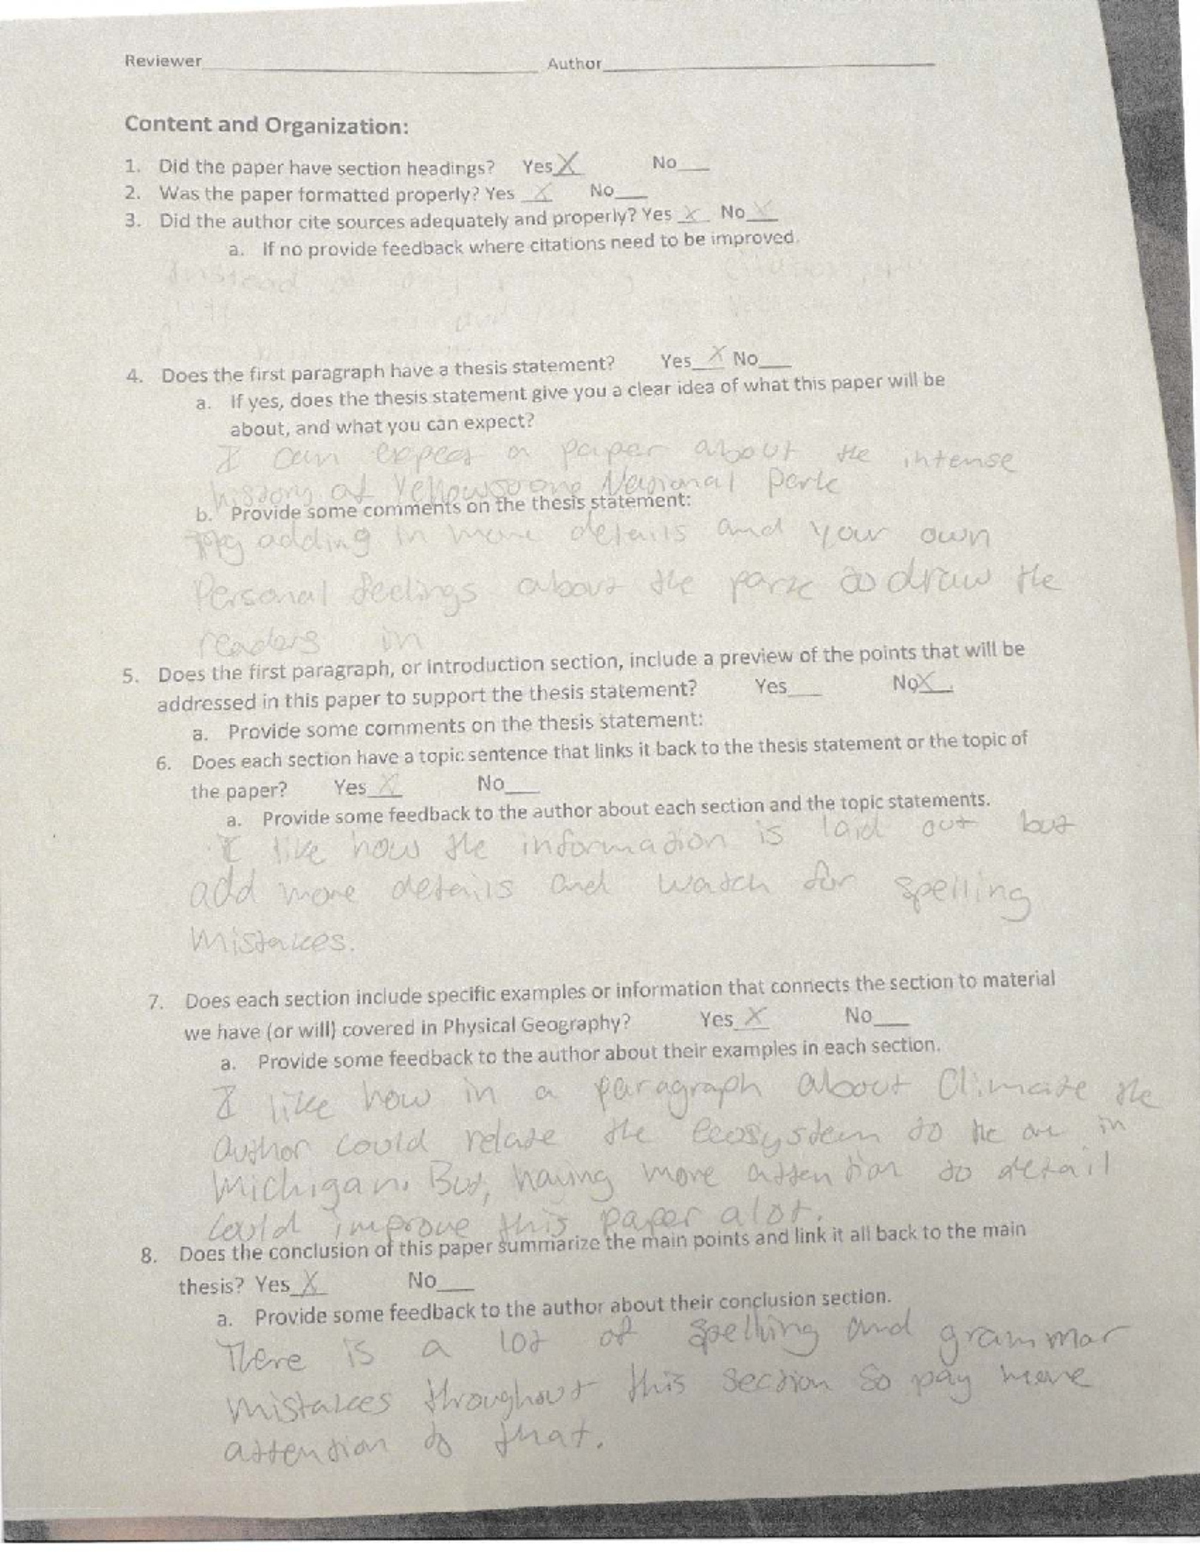 Reviewer____ Author____
Content and Organization:
1. Did the paper have section headings? Yes X No___
2. Was the paper formatted properly? Yes X No___
3. Did the author cite sources adequately and properly? Yes X No X
a. If no provide feedback where citations need to be improved.
Instead
and
4. Does the first paragraph have a thesis statement? Yes X No___
a. If yes, does the thesis statement give you a clear idea of what this paper will be
about, and what you can expect?
I can expect a paper about the intense
history of Yellowstone National Park
b. Provide some comments on the thesis statement:
Try adding in more details and your own
Personal feelings about the park to draw the
readers in
5. Does the first paragraph, or introduction section, include a preview of the points that will be
addressed in this paper to support the thesis statement? Yes___ No X
a. Provide some comments on the thesis statement:
6. Does each section have a topic sentence that links it back to the thesis statement or the topic of
the paper? Yes X No___
a. Provide some feedback to the author about each section and the topic statements.
I like how the information is laid out but
add more details and watch for spelling
Mistakes.
7. Does each section include specific examples or information that connects the section to material
we have (or will) covered in Physical Geography? Yes X No___
a. Provide some feedback to the author about their examples in each section.
I like how in a paragraph about Climate the
author could relate the ecosystem to the one in
Michigan. But, having more attention to detail
could improve this paper alot.
8. Does the conclusion of this paper summarize the main points and link it all back to the main
thesis? Yes X No___
a. Provide some feedback to the author about their conclusion section.
There is a lot of spelling and grammar
mistakes throughout this section so pay more
attention to that.